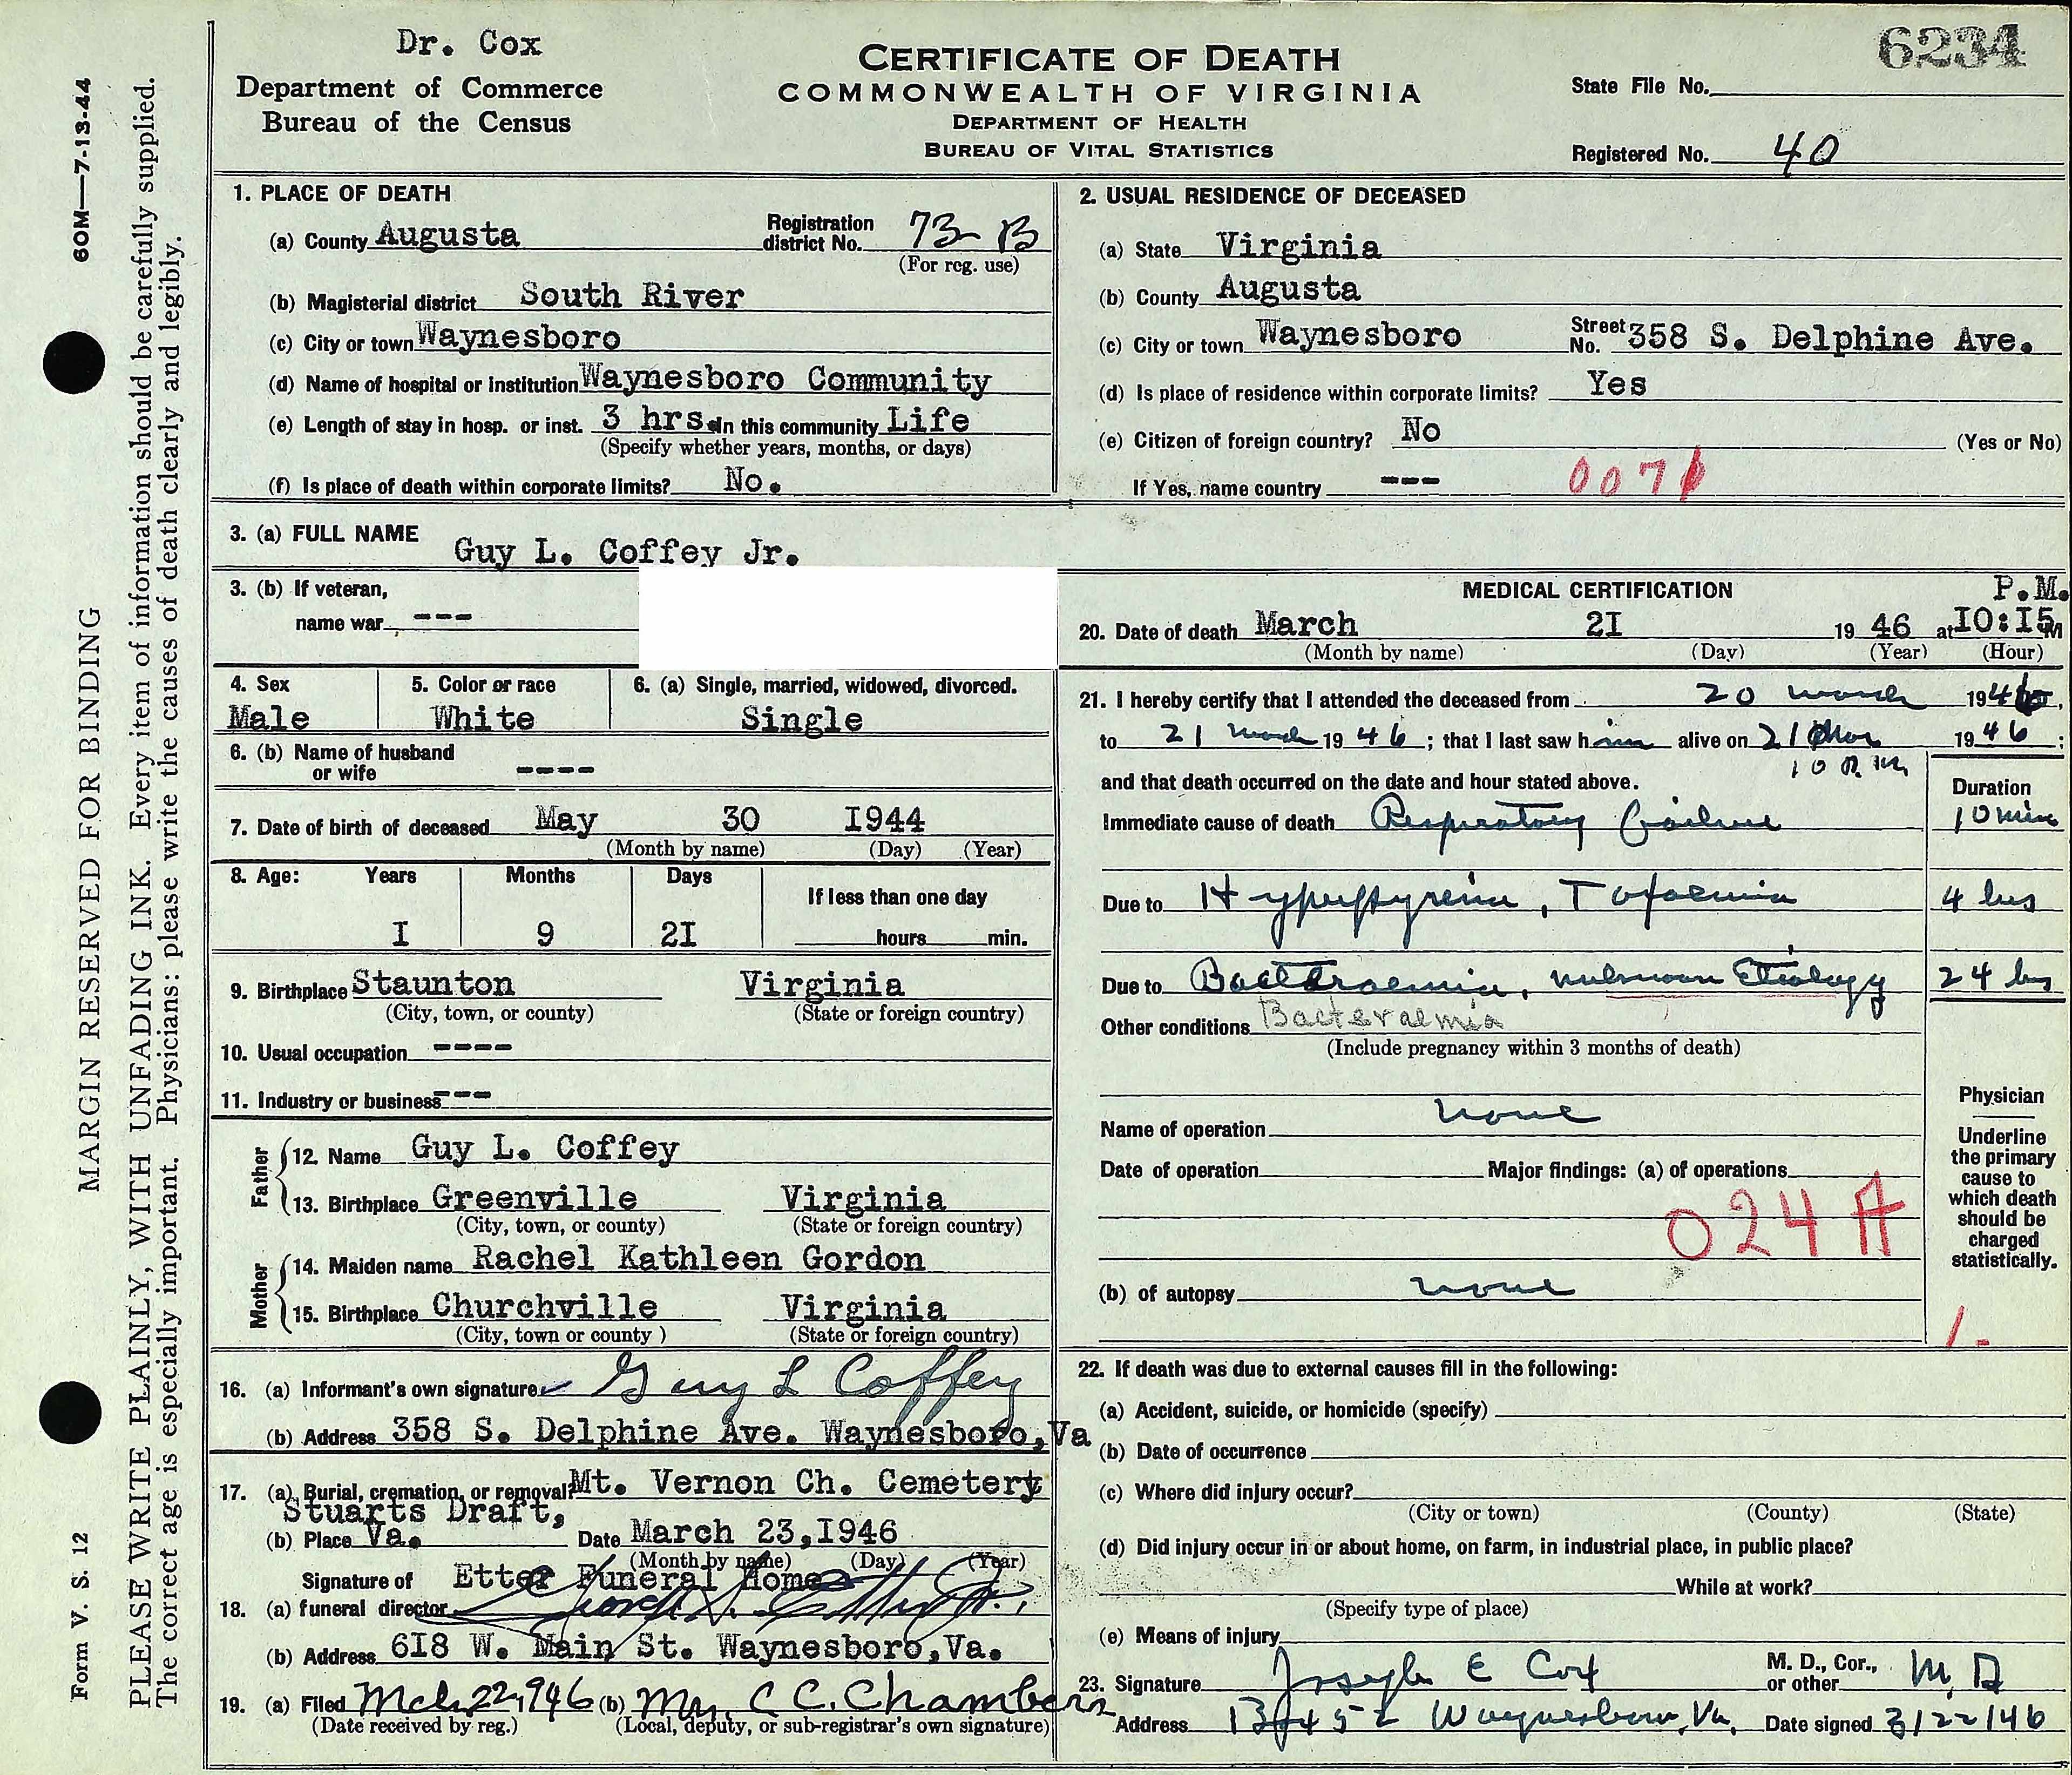 Dr. Cox
Department of Commerce
Bureau of the Census
CERTIFICATE OF DEATH
COMMONWEALTH OF VIRGINIA
DEPARTMENT OF HEALTH
BUREAU OF VITAL STATISTICS
6234
State File No.
Registered No. 40
60M—7-13-44
MARGIN RESERVED FOR BINDING
Form V. S. 12
PLEASE WRITE PLAINLY, WITH UNFADING INK. Every item of information should be carefully supplied.
The correct age is especially important. Physicians: please write the causes of death clearly and legibly.
1. PLACE OF DEATH
(a) County Augusta Registration district No. 73 B
(For reg. use)
(b) Magisterial district South River
(c) City or town Waynesboro
(d) Name of hospital or institution Waynesboro Community
(e) Length of stay in hosp. or inst. 3 hrs. In this community Life
(Specify whether years, months, or days)
(f) Is place of death within corporate limits? No.
2. USUAL RESIDENCE OF DECEASED
(a) State Virginia
(b) County Augusta
(c) City or town Waynesboro Street No. 358 S. Delphine Ave.
(d) Is place of residence within corporate limits? Yes
(e) Citizen of foreign country? No (Yes or No)
If Yes, name country --- 007
3. (a) FULL NAME Guy L. Coffey Jr.
3. (b) If veteran,
name war ---
4. Sex 5. Color or race 6. (a) Single, married, widowed, divorced.
Male White Single
6. (b) Name of husband
or wife ----
7. Date of birth of deceased May 30 I944
(Month by name) (Day) (Year)
8. Age: Years Months Days If less than one day
I 9 2I hours min.
9. Birthplace Staunton Virginia
(City, town, or county) (State or foreign country)
10. Usual occupation ----
11. Industry or business ---
Father
12. Name Guy L. Coffey
13. Birthplace Greenville Virginia
(City, town, or county) (State or foreign country)
Mother
14. Maiden name Rachel Kathleen Gordon
15. Birthplace Churchville Virginia
(City, town or county ) (State or foreign country)
16. (a) Informant's own signature Guy L Coffey
(b) Address 358 S. Delphine Ave. Waynesboro, Va
17. (a) Burial, cremation, or removal? Mt. Vernon Ch. Cemetery
Stuarts Draft,
(b) Place Va. Date March 23, I946
(Month by name) (Day) (Year)
Signature of Etter Funeral Home
18. (a) funeral director
(b) Address 6I8 W. Main St. Waynesboro, Va.
19. (a) Filed Mch 22, 1946 (b) Mrs. C C. Chambers
(Date received by reg.) (Local, deputy, or sub-registrar's own signature)
MEDICAL CERTIFICATION P.M.
20. Date of death March 2I 19 46 at I0:I5 M
(Month by name) (Day) (Year) (Hour)
21. I hereby certify that I attended the deceased from 20 march 1946,
to 21 march 19 46 ; that I last saw him alive on 21 Mar 19 46 ;
10 P.M.
and that death occurred on the date and hour stated above. Duration
Immediate cause of death Respiratory failure 10 min
Due to Hyperpyrexia, Toxaemia 4 hrs
Due to Bacteraemia, unknown Etiology 24 hrs
Other conditions Bacteraemia
(Include pregnancy within 3 months of death)
Name of operation none
Date of operation Major findings: (a) of operations
024 A
(b) of autopsy none
Physician
Underline the primary cause to which death should be charged statistically.
1-
22. If death was due to external causes fill in the following:
(a) Accident, suicide, or homicide (specify)
(b) Date of occurrence
(c) Where did injury occur?
(City or town) (County) (State)
(d) Did injury occur in or about home, on farm, in industrial place, in public place?
While at work?
(Specify type of place)
(e) Means of injury
23. Signature Joseph E Cox M. D., Cor., or other M.D
Address Box 452 Waynesboro, Va. Date signed 3/22/46